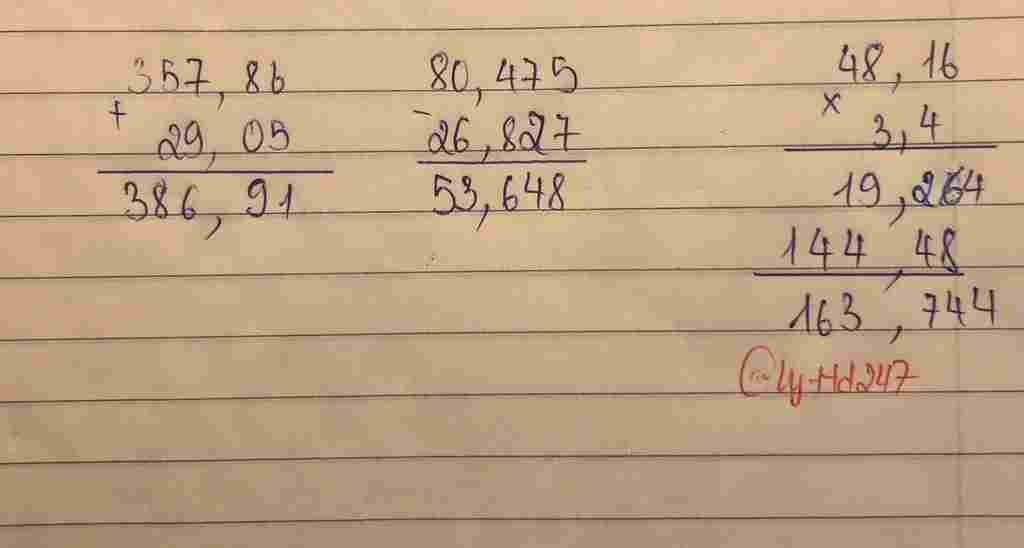 357,86
+
29,05
386,91
80,475
-
26,827
53,648
48,16
x
3,4
19,264
144,48
163,744